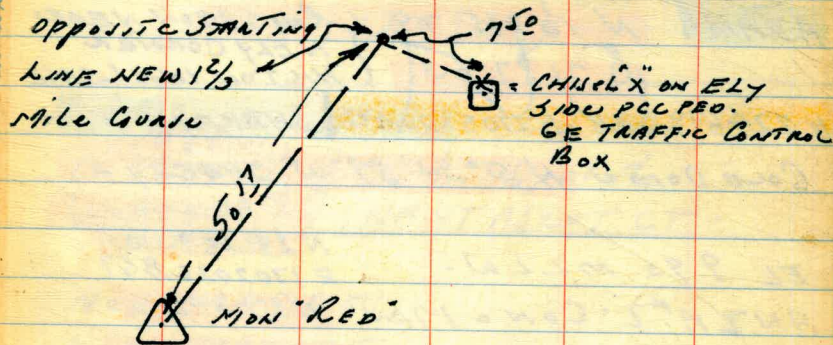 OPPOSITE STARTING
LINE NEW 1 2/3
MILE COURSE
7 50
= CHISEL "X" ON ELY
SIDE PCC PED.
GE TRAFFIC CONTROL
BOX
50 17
MON "RED"